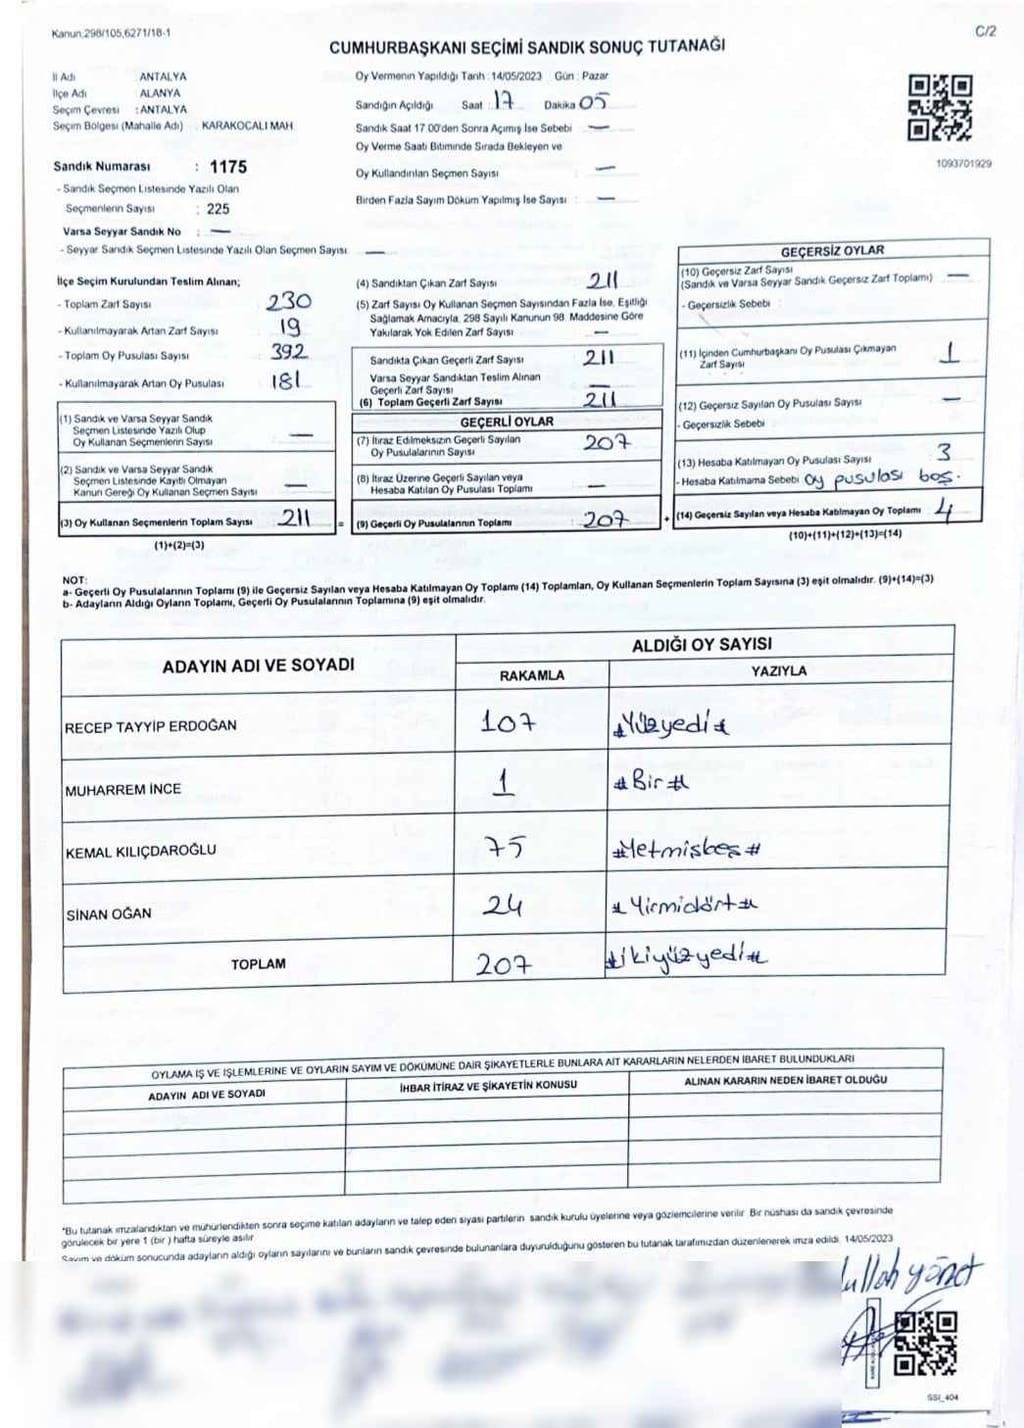 Kanun:298/105,6271/18-1
C/2
CUMHURBAŞKANI SEÇİMİ SANDIK SONUÇ TUTANAĞI
İl Adı : ANTALYA
İlçe Adı : ALANYA
Seçim Çevresi : ANTALYA
Seçim Bölgesi (Mahalle Adı) : KARAKOCALI MAH.
Sandık Numarası : 1175
- Sandık Seçmen Listesinde Yazılı Olan
Seçmenlerin Sayısı : 225
Varsa Seyyar Sandık No : —
- Seyyar Sandık Seçmen Listesinde Yazılı Olan Seçmen Sayısı —
Oy Vermenin Yapıldığı Tarih : 14/05/2023 Gün : Pazar
Sandığın Açıldığı Saat : 17 Dakika 05
Sandık Saat 17.00'den Sonra Açımış İse Sebebi : —
Oy Verme Saati Bitiminde Sırada Bekleyen ve
Oy Kullandırılan Seçmen Sayısı —
Birden Fazla Sayım Döküm Yapılmış İse Sayısı : —
1093701929
İlçe Seçim Kurulundan Teslim Alınan;
- Toplam Zarf Sayısı : 230
- Kullanılmayarak Artan Zarf Sayısı : 19
- Toplam Oy Pusulası Sayısı : 392
- Kullanılmayarak Artan Oy Pusulası : 181
(1) Sandık ve Varsa Seyyar Sandık
Seçmen Listesinde Yazılı Olup
Oy Kullanan Seçmenlerin Sayısı —
(2) Sandık ve Varsa Seyyar Sandık
Seçmen Listesinde Kayıtlı Olmayan
Kanun Gereği Oy Kullanan Seçmen Sayısı —
(3) Oy Kullanan Seçmenlerin Toplam Sayısı 211 =
(1)+(2)=(3)
(4) Sandıktan Çıkan Zarf Sayısı : 211
(5) Zarf Sayısı Oy Kullanan Seçmen Sayısından Fazla İse, Eşitliği
Sağlamak Amacıyla, 298 Sayılı Kanunun 98. Maddesine Göre
Yakılarak Yok Edilen Zarf Sayısı : —
Sandıkta Çıkan Geçerli Zarf Sayısı 211
Varsa Seyyar Sandıktan Teslim Alınan
Geçerli Zarf Sayısı —
(6) Toplam Geçerli Zarf Sayısı 211
GEÇERLİ OYLAR
(7) İtiraz Edilmeksizin Geçerli Sayılan
Oy Pusulalarının Sayısı 207
(8) İtiraz Üzerine Geçerli Sayılan veya
Hesaba Katılan Oy Pusulası Toplamı —
(9) Geçerli Oy Pusulalarının Toplamı 207 +
GEÇERSİZ OYLAR
(10) Geçersiz Zarf Sayısı
(Sandık ve Varsa Seyyar Sandık Geçersiz Zarf Toplamı) —
- Geçersizlik Sebebi :
(11) İçinden Cumhurbaşkanı Oy Pusulası Çıkmayan
Zarf Sayısı 1
(12) Geçersiz Sayılan Oy Pusulası Sayısı —
- Geçersizlik Sebebi
(13) Hesaba Katılmayan Oy Pusulası Sayısı 3
- Hesaba Katılmama Sebebi Oy pusulası boş.
(14) Geçersiz Sayılan veya Hesaba Katılmayan Oy Toplamı 4
(10)+(11)+(12)+(13)=(14)
NOT:
a- Geçerli Oy Pusulalarının Toplamı (9) ile Geçersiz Sayılan veya Hesaba Katılmayan Oy Toplamı (14) Toplamları, Oy Kullanan Seçmenlerin Toplam Sayısına (3) eşit olmalıdır. (9)+(14)=(3)
b- Adayların Aldığı Oyların Toplamı, Geçerli Oy Pusulalarının Toplamına (9) eşit olmalıdır.
ADAYIN ADI VE SOYADI
ALDIĞI OY SAYISI
RAKAMLA YAZIYLA
RECEP TAYYİP ERDOĞAN 107 #Yüzyedi#
MUHARREM İNCE 1 #Bir#
KEMAL KILIÇDAROĞLU 75 #Yetmişbeş#
SİNAN OĞAN 24 #Yirmidört#
TOPLAM 207 #ikiyüzyedi#
OYLAMA İŞ VE İŞLEMLERİNE VE OYLARIN SAYIM VE DÖKÜMÜNE DAİR ŞİKAYETLERLE BUNLARA AİT KARARLARIN NELERDEN İBARET BULUNDUKLARI
ADAYIN ADI VE SOYADI İHBAR İTİRAZ VE ŞİKAYETİN KONUSU ALINAN KARARIN NEDEN İBARET OLDUĞU
*Bu tutanak imzalandıktan ve mühürlendikten sonra seçime katılan adayların ve talep eden siyasi partilerin sandık kurulu üyelerine veya gözlemcilerine verilir. Bir nüshası da sandık çevresinde
görülecek bir yere 1 (bir) hafta süreyle asılır.
Sayım ve döküm sonucunda adayların aldığı oyların sayılarını ve bunların sandık çevresinde bulunanlara duyurulduğunu gösteren bu tutanak tarafımızdan düzenlenerek imza edildi. 14/05/2023
SSI_404